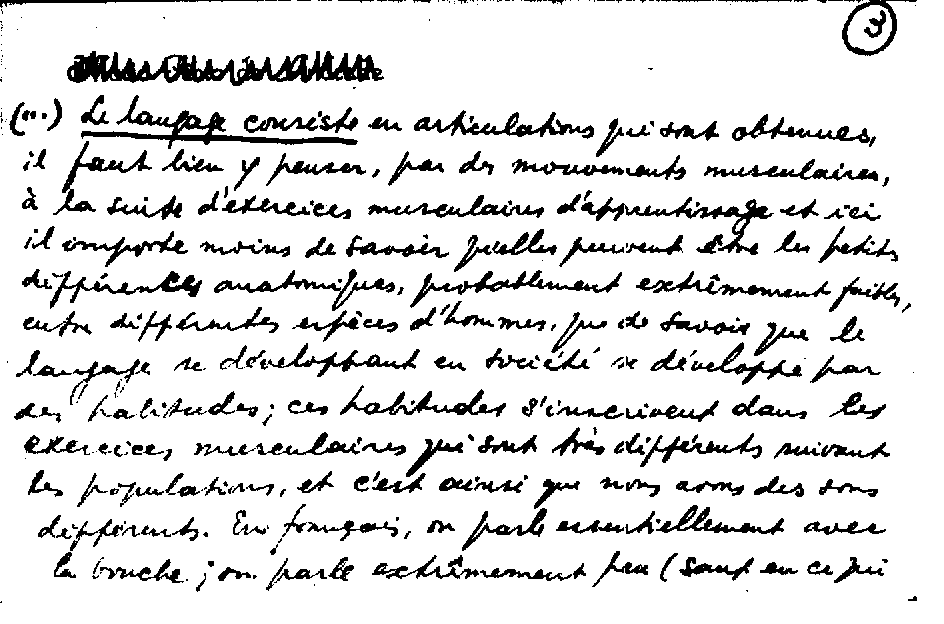 3
(...) Le langage consiste en articulations qui sont obtenues,
il faut bien y penser, par des mouvements musculaires,
à la suite d'exercices musculaires d'apprentissage et ici
il importe moins de savoir quelles peuvent être les petites
différences anatomiques, probablement extrêmement faibles,
entre différentes espèces d'hommes, que de savoir que le
langage se développant en société se développe par
des habitudes ; ces habitudes s'inscrivent dans les
exercices musculaires qui sont très différents suivant
les populations, et c'est ainsi que nous avons des sons
différents. En français, on parle essentiellement avec
la bouche ; on parle extrêmement peu (sauf en ce qui